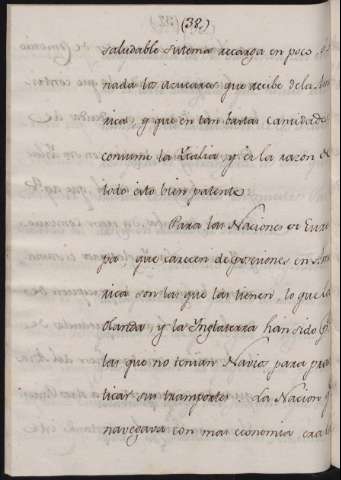 (38.)
saludable sistema recarga en poco, ó
nada los azucares que recibe de la Ame
rica, y que en tan bastas cantidades
consume la Italia, y es la razon de
todo esto bien patente.
Para las Naciones de Euro
pa que carecen de posesiones en Ame
rica son las que las tienen, lo que la
Olanda, y la Inglaterra han sido p.
las que no tenian Navios para prac
ticar sus transportes. La Nacion q
navegava con mas economia era la